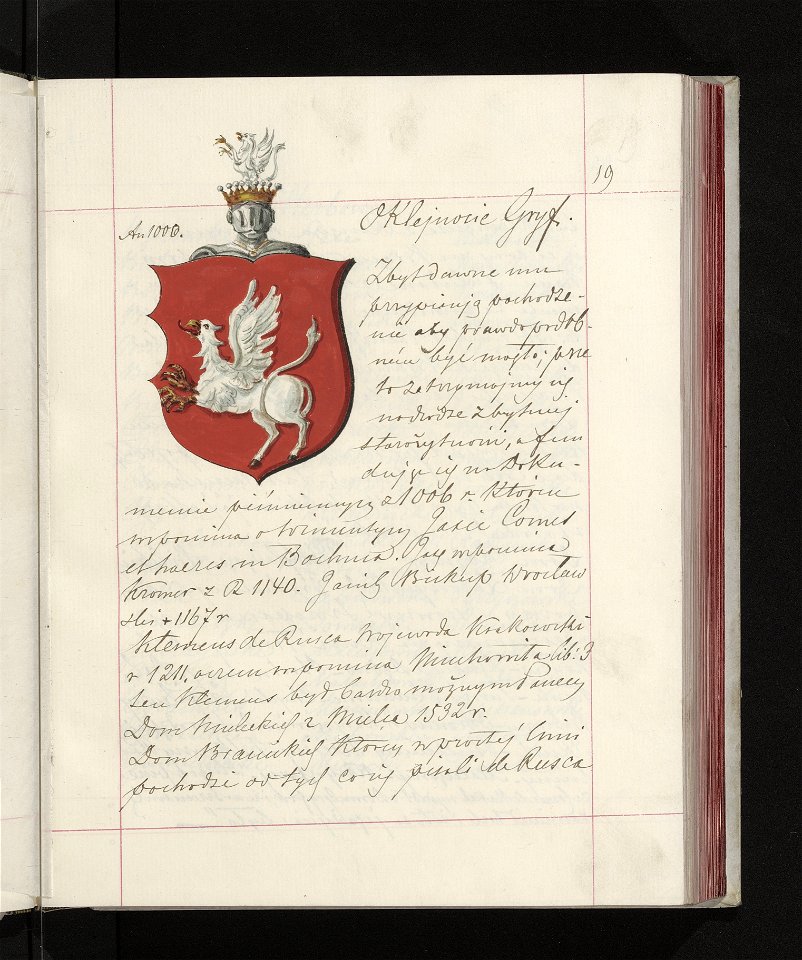 19
An 1000.
O Klejnocie Gryf.
Zbyt dawne mu
przypisują pochodze-
nie aby prawdopodob-
nem być mogło; prze
to zatrzymujmy się
na drodze zbytniej
starożytności, a fun
dując się na Doku-
mencie piśmiennym z 1006 r. który
wspomina o Jaxie Comes
et haeres in Bochnia. Jaxę wspomina
Kromer z R 1140. Janik Biskup Wrocław
ski + 1167 r
Klemens de Rusca Wojewoda Krakowski
r 1211. o czem wspomina Miechowita lib: 3
ten Klemens był bardzo możnym Panem
Dom Mieleckich z Mielca 1532 r.
Dom Branickich którzy w prostej linii
pochodzi od tych co się pisali de Rusca